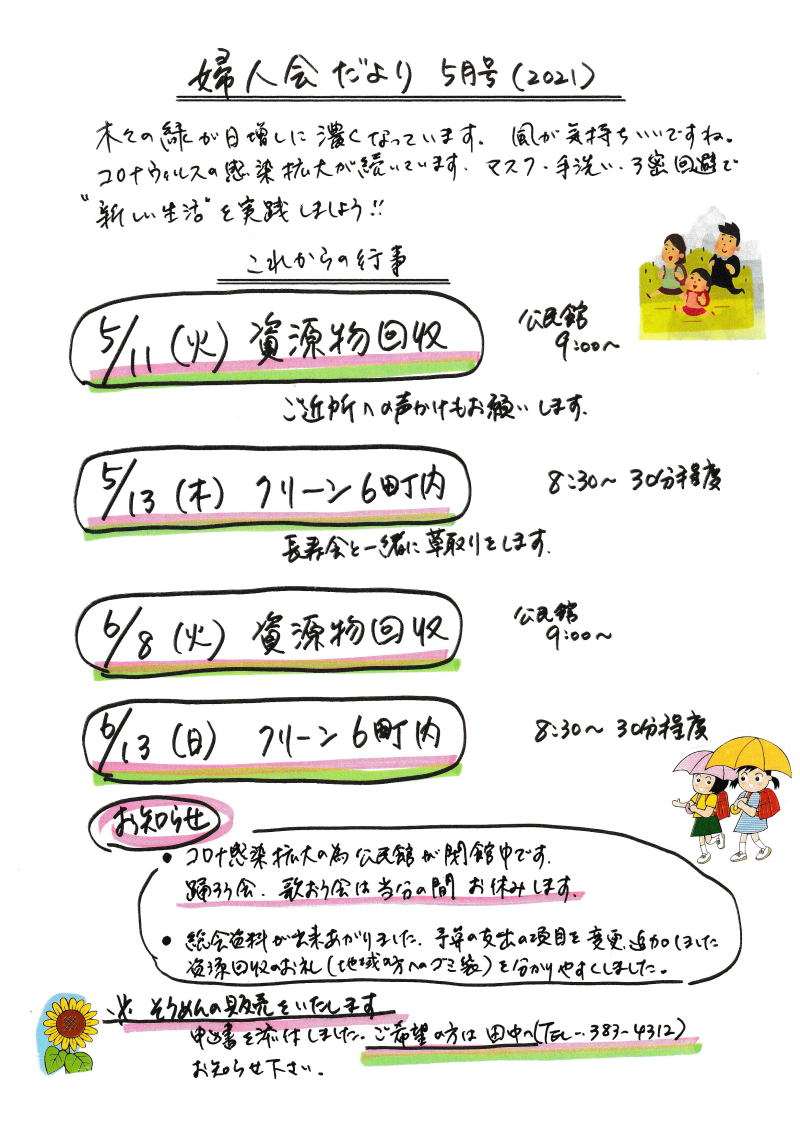 婦人会だより 5月号(2021)
木々の緑が日増しに濃くなっています。 風が気持ちいいですね。
コロナウィルスの感染拡大が続いています. マスク・手洗い・3密回避で
"新しい生活"を実践しましょう!!
これからの行事
5/11(火) 資源物回収 公民館 9:00〜
ご近所への声かけもお願いします.
5/13(木) クリーン6町内 8:30〜 30分程度
長寿会と一緒に草取りをします.
6/8(火) 資源物回収 公民館 9:00〜
6/13(日) クリーン6町内 8:30〜 30分程度
お知らせ
• コロナ感染拡大の為公民館が閉館中です.
踊ろう会. 歌おう会は当分の間 お休みします.
• 総会資料が出来あがりました. 予算の支出の項目を変更,追加しました
資源回収のお礼(地域の方へのゴミ袋)を分かりやすくしました。
※ そうめんの販売をいたします
申込書を添付しました. ご希望の方は 田中へ(TEL-. 383-4312)
お知らせ下さい.